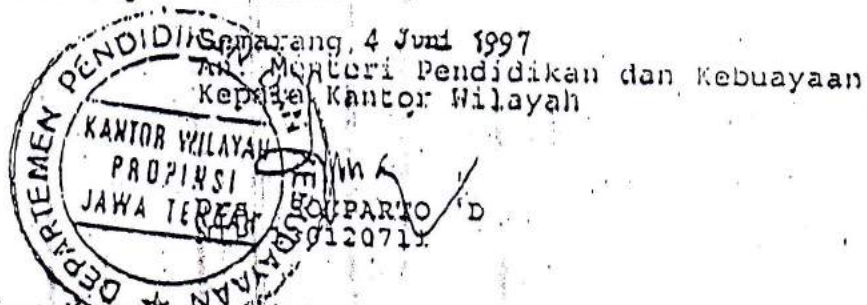 Semarang, 4 Juni 1997
An. Menteri Pendidikan dan Kebuayaan
Kepala Kantor Wilayah
DEPARTEMEN PENDIDIKAN
KEBUDAYAAN
KANTOR WILAYAH
PROPINSI
JAWA TENGAH
SOEPARTO D